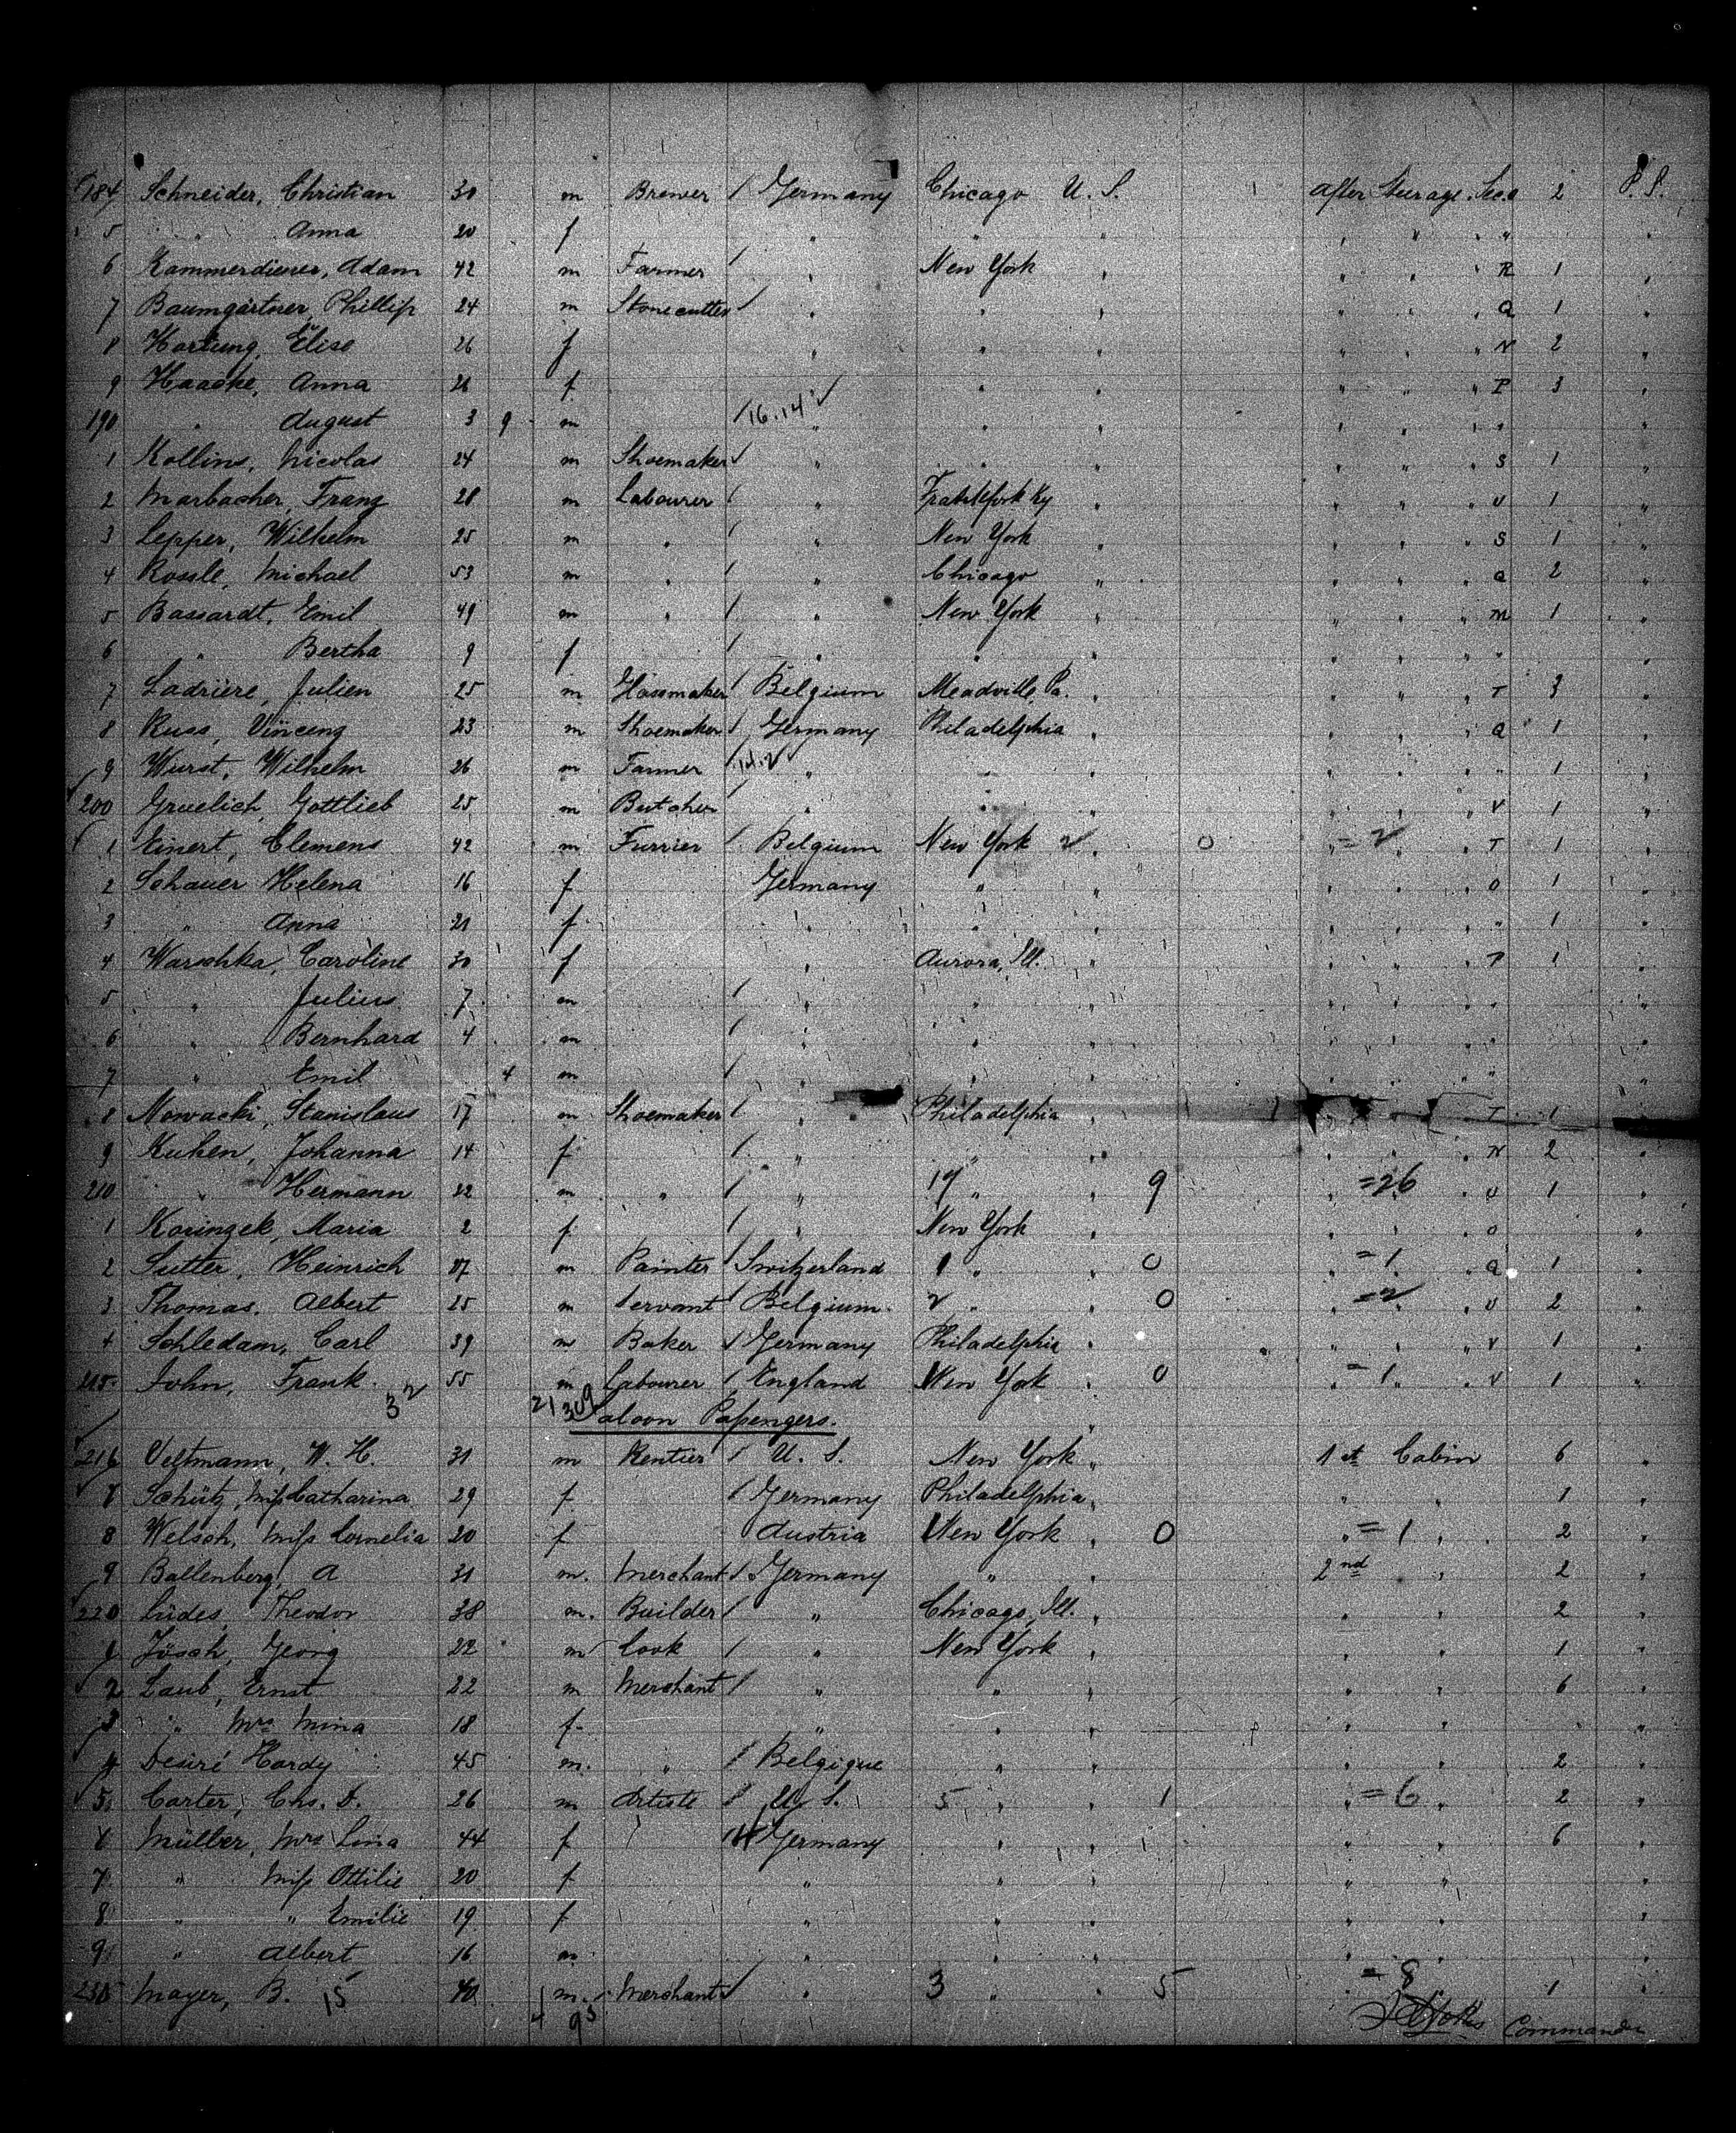 184 Schneider, Christian 30 m Brewer / Germany Chicago U. S. After Steurage. Sec. 2 P. S.
5 " Anna 20 f " " " " " "
6 Kammerdiener, Adam 42 m Farmer / " New York " " " " R 1 "
7 Baumgärtner, Phillip 24 m Stonecutter / " " " " " " Q 1 "
8 Hartung, Elise 26 f " " " " " " N 2 "
9 Haacke, Anna 26 f " " " " " P 3 "
190 " August 3 9 m / 16.14 " " " " " " "
1 Kollins, Nicolas 24 m Shoemaker / " " " " " S 1 "
2 Marbacher, Franz 28 m Labourer / " Frankfork Ky " " " " U 1 "
3 Lepper, Wilhelm 25 m " / " New York " " " " S 1 "
4 Rossle, Michael 53 m " / " Chicago " " " " Q 2 "
5 Bassardt, Emil 49 m " / " New York " " " " M 1 "
6 " Bertha 9 f / " " " " " " "
7 Ladrière, Julien 25 m Glassmaker / Belgium Meadville, Pa. " " " " T 3 "
8 Russ, Vincenz 23 m Shoemaker / Germany Philadelphia " " " " Q 1 "
9 Wurst, Wilhelm 26 m Farmer 14.2 " " " " " " " 1 "
200 Gruelich, Gottlieb 25 m Butcher / " " " " " " V 1 "
1 Einert, Clemens 42 m Furrier / Belgium New York 2 " 0 " = 2 " T 1 "
2 Schauer Helena 16 f Germany " " " " " O 1 "
3 " Anna 21 f " " " " " " " 1 "
4 Warschka, Caroline 30 f " Aurora, Ill. " " " " P 1 "
5 " Julius 7 m / " " " " " " " "
6 " Bernhard 4 m / " " " " " " " "
7 " Emil 4 m / " " " " " " " "
8 Nowacki, Stanislaus 17 m Shoemaker / " Philadelphia " " T 1
9 Kuhen, Johanna 14 f / " " " " " " N 2 "
210 " Hermann 22 m " / " 17 " " 9 " = 26 " U 1 "
1 Koringek, Maria 2 f / " New York " " " O "
2 Sutter, Heinrich 27 m Painter / Switzerland 1 " " 0 " = 1 " Q 1 "
3 Thomas, Albert 25 m Servant / Belgium 2 " " 0 " = 2 " U 2 "
4 Schledam, Carl 39 m Baker / Germany Philadelphia " " " " V 1 "
215 John, Frank 55 m Labourer / England New York " 0 " = 1 " V 1 "
32 21
Saloon Passengers.
216 Veltmann, W. H. 31 m Rentier / U. S. New York " 1st Cabin 6 "
7 Schütz, Miss Catharina 29 f / Germany Philadelphia " " " 1 "
8 Welsch, Miss Cornelia 20 f Austria New York " 0 " = 1 " 2 "
9 Ballenberg, A 31 m. Merchant / Germany " " 2nd " 2 "
220 Lüdes, Theodor 38 m. Builder / " Chicago, Ill. " " " 2 "
1 Jösch, Georg 22 m Cook / " New York " " " 1 "
2 Laub, Ernst 22 m Merchant / " " " " " 6 "
3 " Mrs Mina 18 f " " " " " "
4 Desiré Hardy 45 m. " / Belgique " " " " 2 "
5 Carter, Chs. D. 26 m Artiste / U. S. 5 " " 1 " = 6 " 2 "
6 Müller, Mrs Lina 44 f / Germany " " " " 6 "
7 " Miss Ottilie 20 f " " " " " "
8 " " Emilie 19 f " " " " " "
9 " Albert 16 m " " " " " "
230 Mayer, B. 40 m. Merchant / " 3 " " 5 = 8 " 1 "
15 Commander